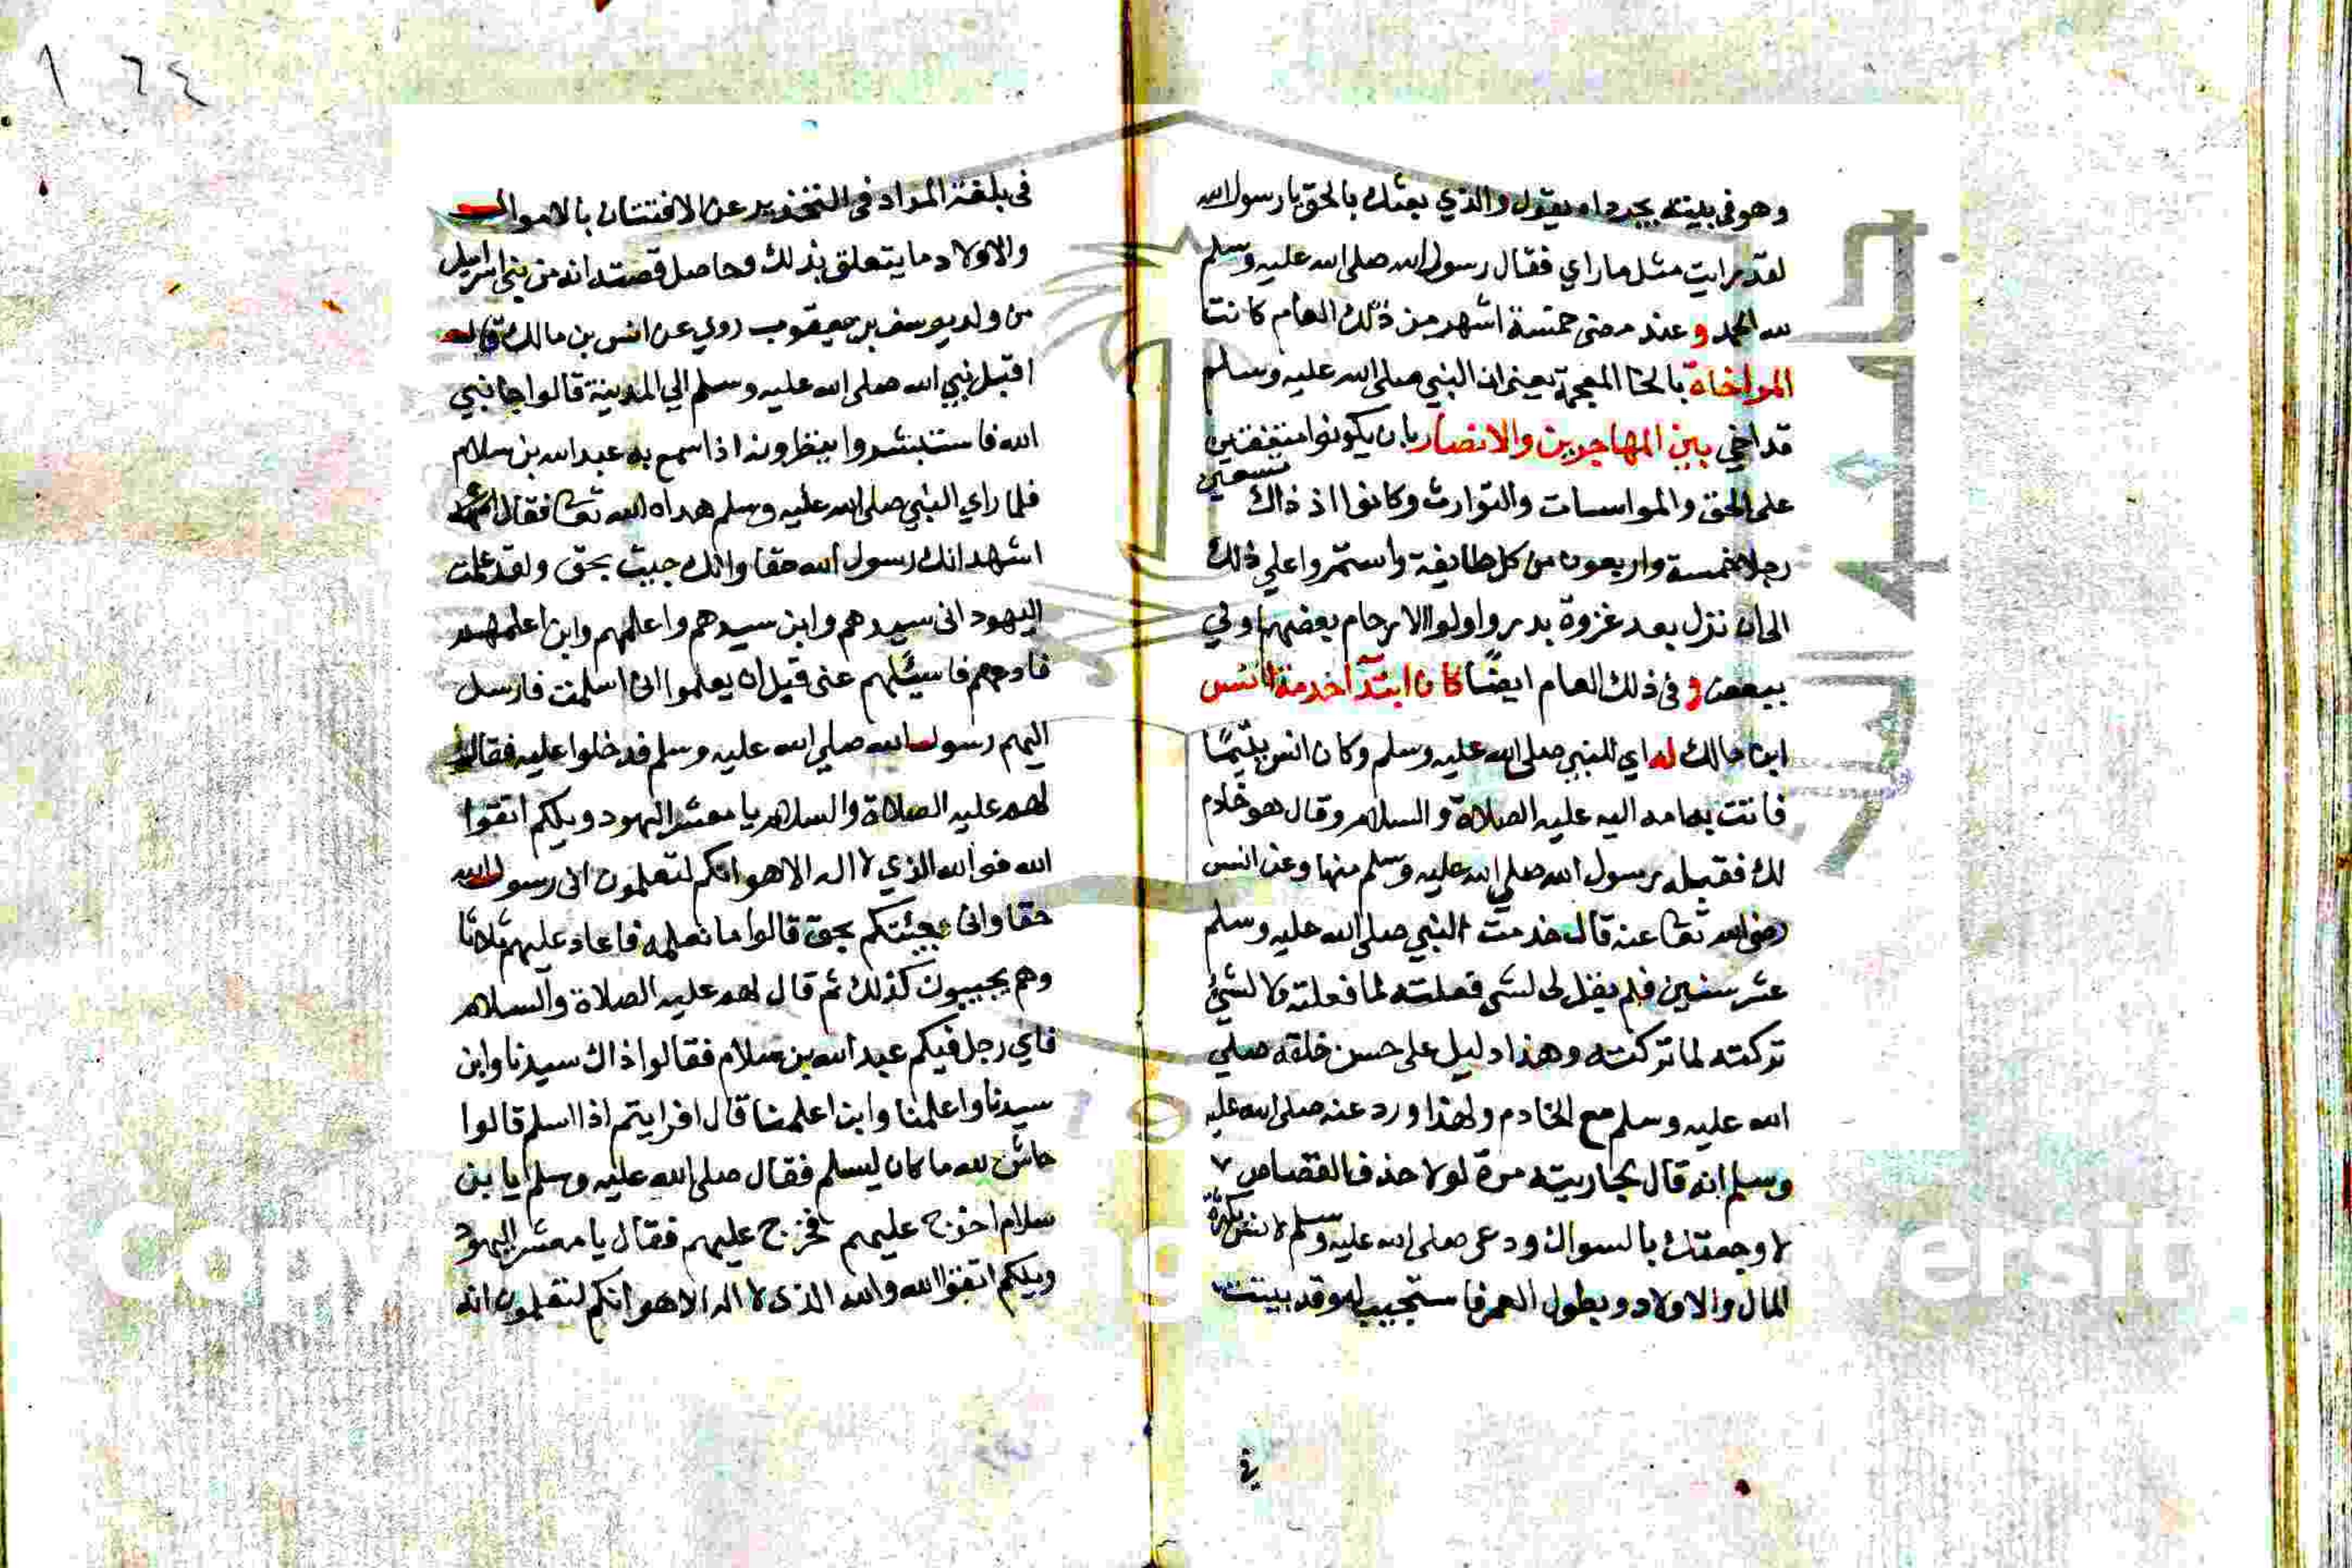 وهو في بيته يجر رداه يقول والذي بعثك بالحق يا رسول الله
لقد رايت مثل ما راي فقال رسول الله صلى الله عليه وسلم
لله الحمد وعند مضي خمسة اشهر من ذلك العام كانتا
المواخاة بالخا المعجمة يعني ان النبي صلى الله عليه وسلم
قد اخي بين المهاجرين والانصار بان يكونوا متفقين
على الحق والمواسات والتوارث وكانوا اذ ذاك تسعين
رجلا خمسة واربعون من كل طايفة واستمروا علي ذلك
الى ان نزل بعد غزوة بدر واولوا الارحام بعضهم اولي
ببعض وفي ذلك العام ايضًا كان ابتدآ خدمة انس
ابن مالك له اي للنبي صلى الله عليه وسلم وكان انس يتيمًا
فاتت به امه اليه عليه الصلاة والسلام وقال هو خادم
لك فقبله رسول الله صلي الله عليه وسلم منها وعن انس
رضي الله تعا عنه قال خدمت النبي صلى الله عليه وسلم
عشر سنين فلم يقل لى لشي فعلته لما فعلته ولا لشئ
تركته لما تركته وهذا دليل على حسن خلقه صلي
الله عليه وسلم مع الخادم ولهذا ورد عنه صلى الله عليه
وسلم انه قال لجاريته مرة لولا خذف القصاص
لاوجعتك بالسواك ودعى صلى الله عليه وسلم لانس بكثرة
المال والاولاد وبطول العمر فاستجيب له وقد بينت
في
١٦٤
فى بلغة المراد فى التحذير عن الافتتان بالاموال
والاولاد ما يتعلق بذلك وحاصل قصته انه من بني اسرايل
من ولد يوسف بن يعقوب روي عن انس بن مالك قال
اقبل نبي الله صلى الله عليه وسلم الي المدينة قالوا جا نبي
الله فاستبشروا ينظرونه اذا سمع به عبد الله بن سلام
فلما راي النبي صلى الله عليه وسلم هداه الله تعا فقال
اشهد انك رسول الله حقا وانك جيت بحق ولقد علمت
اليهود انى سيدهم وابن سيدهم واعلمهم وابن اعلمهم
فادعهم فاسئلهم عنى قبل ان يعلموا انى اسلمت فارسل
اليهم رسول الله صلي الله عليه وسلم فدخلوا عليه فقال
لهم عليه الصلاة والسلام يا معشر اليهود ويلكم اتقوا
الله فوالله الذي لا اله الا هو انكم لتعلمون انى رسول الله
حقا وانى جيئتكم بحق قالوا ما نعلمه فاعاد عليهم ثلاثا
وهم يجيبون كذلك ثم قال لهم عليه الصلاة والسلام
فاي رجل فيكم عبد الله بن سلام فقالوا ذاك سيدنا وابن
سيدنا واعلمنا وابن اعلمنا قال افرايتم اذا اسلم قالوا
حاش لله ما كان ليسلم فقال صلى الله عليه وسلم يا بن
سلام اخرج عليهم فخرج عليهم فقال يا معشر اليهود
ويلكم اتقوا الله والله الذى لا اله الا هو انكم لتعلمون انه